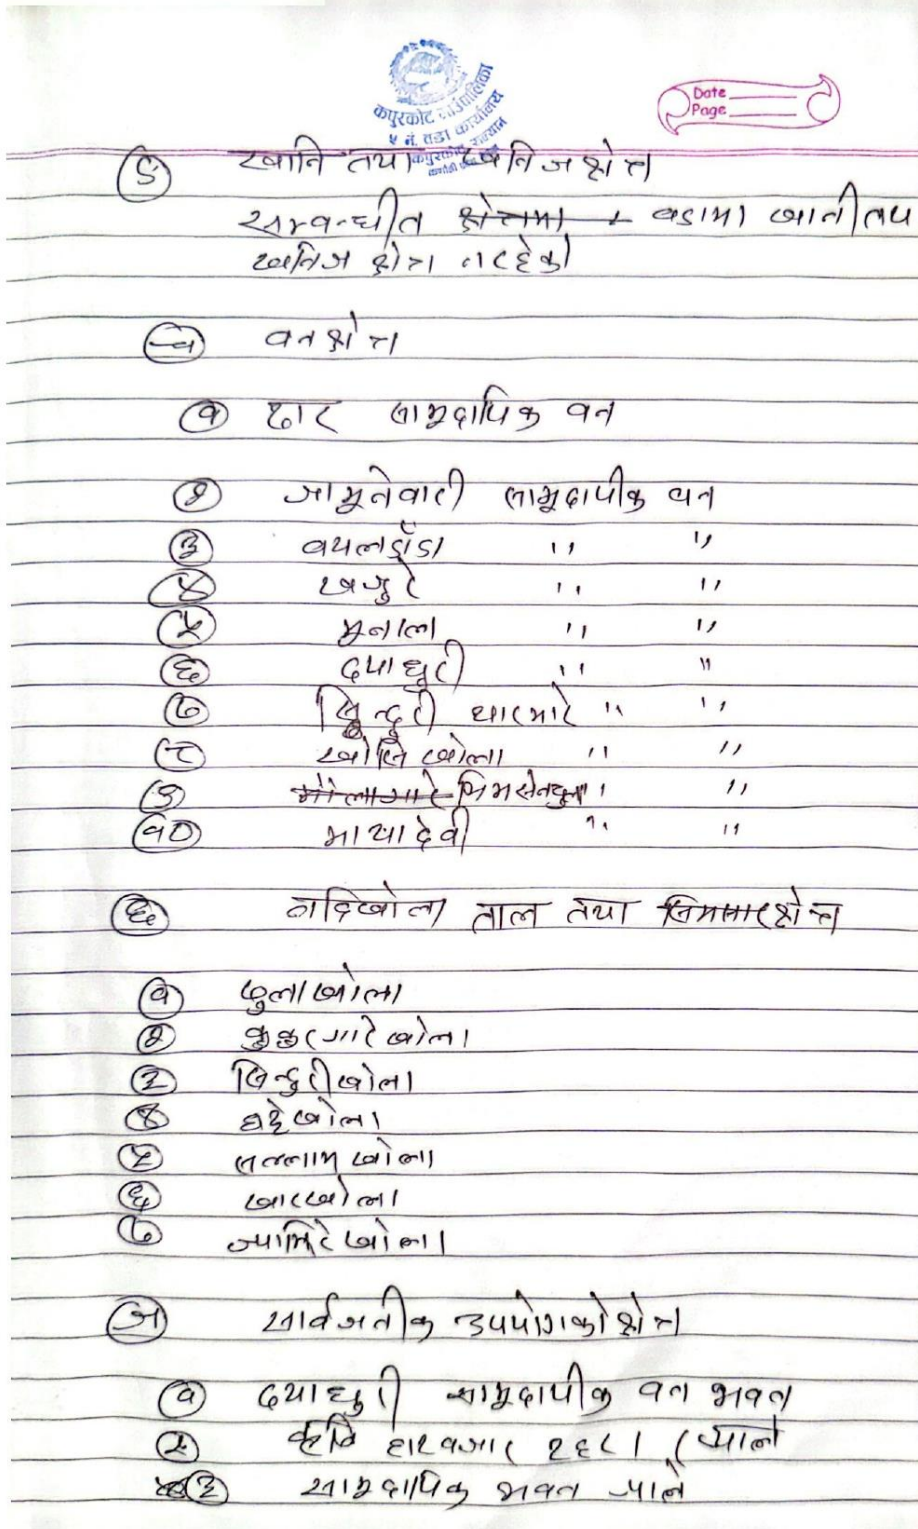 कपुरकोट गाउँपालिका
५ नं. वडा कार्यालय
Date
Page
ङ खानि तथा खनिज क्षेत्र
सम्वन्धीत क्षेत्रमा - वडामा खानी तथ
खनिज क्षेत्र नरहेको
च वन क्षेत्र
१ ढार सामुदायिक वन
२ जामुनेवारी सामुदायीक वन
३ वयलडाँडा " "
४ खजुरे " "
५ मुनाला " "
६ दयाधुरी " "
७ सिन्दुरी धारमारे " "
८ खोलि खोला " "
९ भिमसेनथुम " "
१० मायादेवी " "
छ नदिखोला ताल तथा सिमसार क्षेत्र
१ ठुलाखोला
२ कुकुरगारे खोला
३ सिन्दुरी खोला
४ घट्टे खोला
५ खोला
६ खारखोला
७ ज्यामिरे खोला
ज सार्वजनीक उपयोगको क्षेत्र
१ दयाधुरी सामुदायीक वन भवन
२ कृषि हाटवजार २६८। (साल
३ सामुदायिक भवन